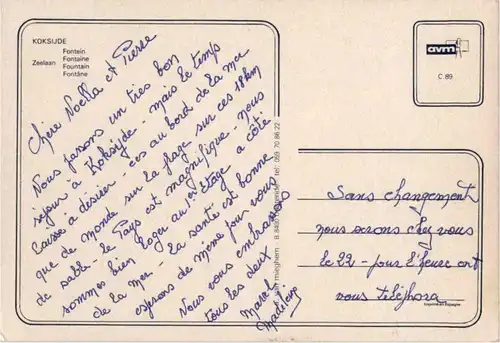 KOKSIJDE
Zeelaan
Fontein
Fontaine
Fountain
Fontäne
Chère Noella et Pierre
Nous passons un très bon
séjour à Koksijde - mais le temps
laisse à désirer - ces au bord de la mer
que de monde sur la plage sur ces 18 km
de sable - le Pays est magnifique - nous
sommes bien loger au 1er Etage à côté
de la mer - La santé est bonne
esperons de même pour vous
Nous vous embrassons
tous les deux
Marcel
Madeleine
van mieghem B 8400 tel.: 059 70 86 22
avm
C. 89
Sans changement
nous serons chez vous
le 22 - pour l'heure ont
vous telephora